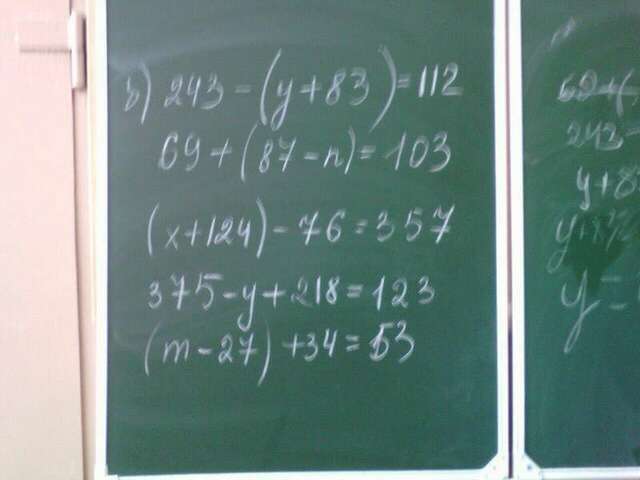 b) 243 - (y + 83) = 112
69 + (87 - n) = 103
(x + 124) - 76 = 357
375 - y + 218 = 123
(m - 27) + 34 = 53
69 + (
243 -
y + 8
y =